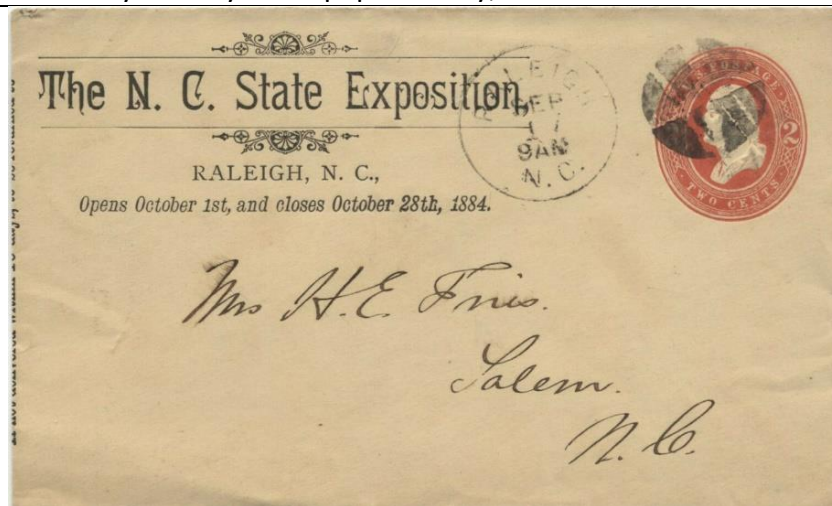 The N. C. State Exposition,
RALEIGH, N. C.,
Opens October 1st, and closes October 28th, 1884.
RALEIGH
SEP
17
9AM
N. C.
U.S. POSTAGE
2
TWO CENTS
Mrs H. E. Fries.
Salem.
N. C.